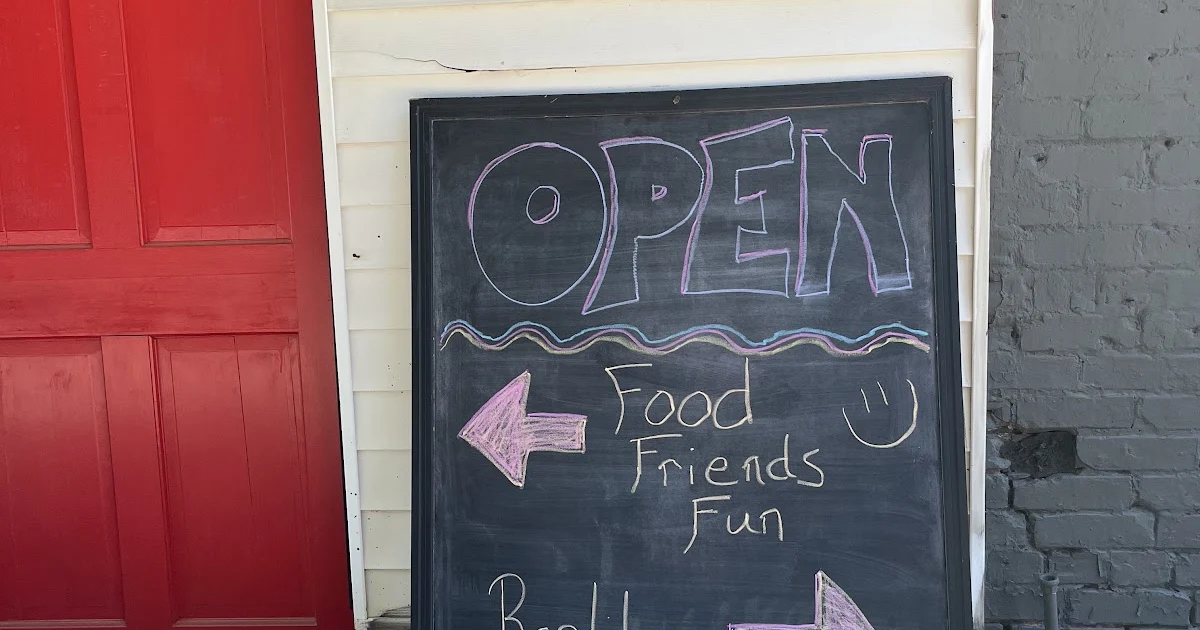 OPEN
Food
Friends
Fun